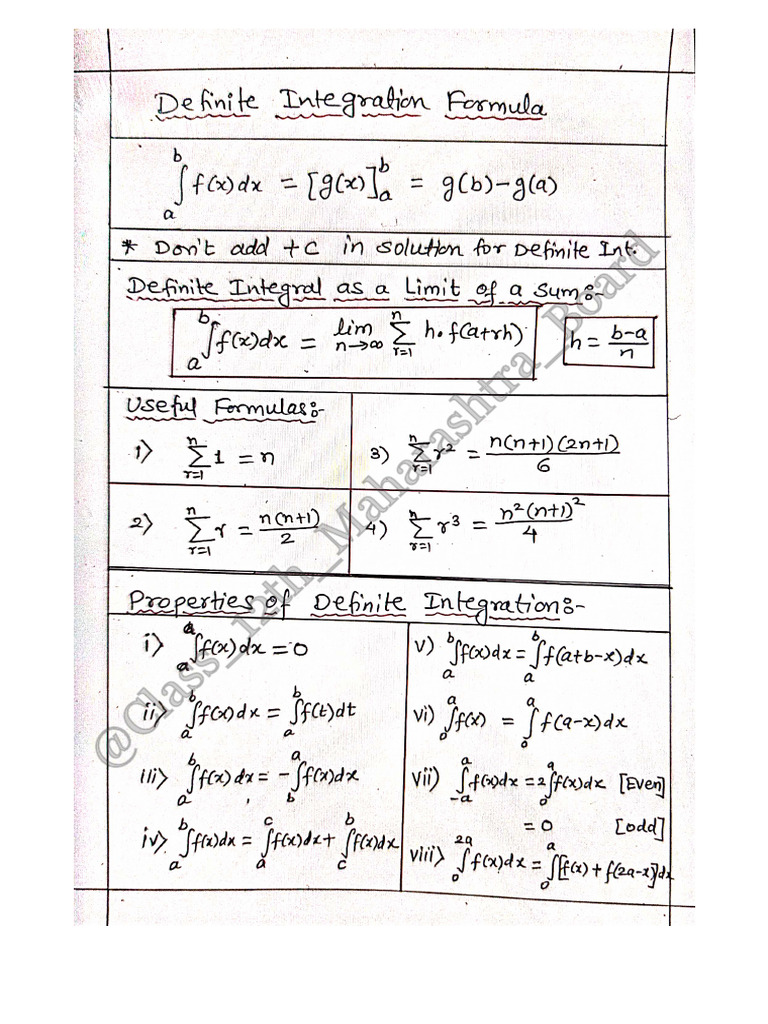 Definite Integration Formula
∫_a^b f(x)dx = [g(x)]_a^b = g(b)-g(a)
* Don't add +C in solution for Definite Int.
Definite Integral as a Limit of a Sum:-
∫_a^b f(x)dx = lim_{n→∞} Σ_{r=1}^n h.f(a+rh)    h = (b-a)/n
Useful Formulas:-
1) Σ_{r=1}^n 1 = n
2) Σ_{r=1}^n r = n(n+1)/2
3) Σ_{r=1}^n r² = n(n+1)(2n+1)/6
4) Σ_{r=1}^n r³ = n²(n+1)²/4
Properties of Definite Integration:-
i) ∫_a^a f(x)dx = 0
ii) ∫_a^b f(x)dx = ∫_a^b f(t)dt
iii) ∫_a^b f(x)dx = -∫_b^a f(x)dx
iv) ∫_a^b f(x)dx = ∫_a^c f(x)dx + ∫_c^b f(x)dx
v) ∫_a^b f(x)dx = ∫_a^b f(a+b-x)dx
vi) ∫_0^a f(x) = ∫_0^a f(a-x)dx
vii) ∫_{-a}^a f(x)dx = 2∫_0^a f(x)dx [Even]
= 0 [odd]
viii) ∫_0^{2a} f(x)dx = ∫_0^a [f(x)+f(2a-x)]dx
@Class_12th_Maharashtra_Board